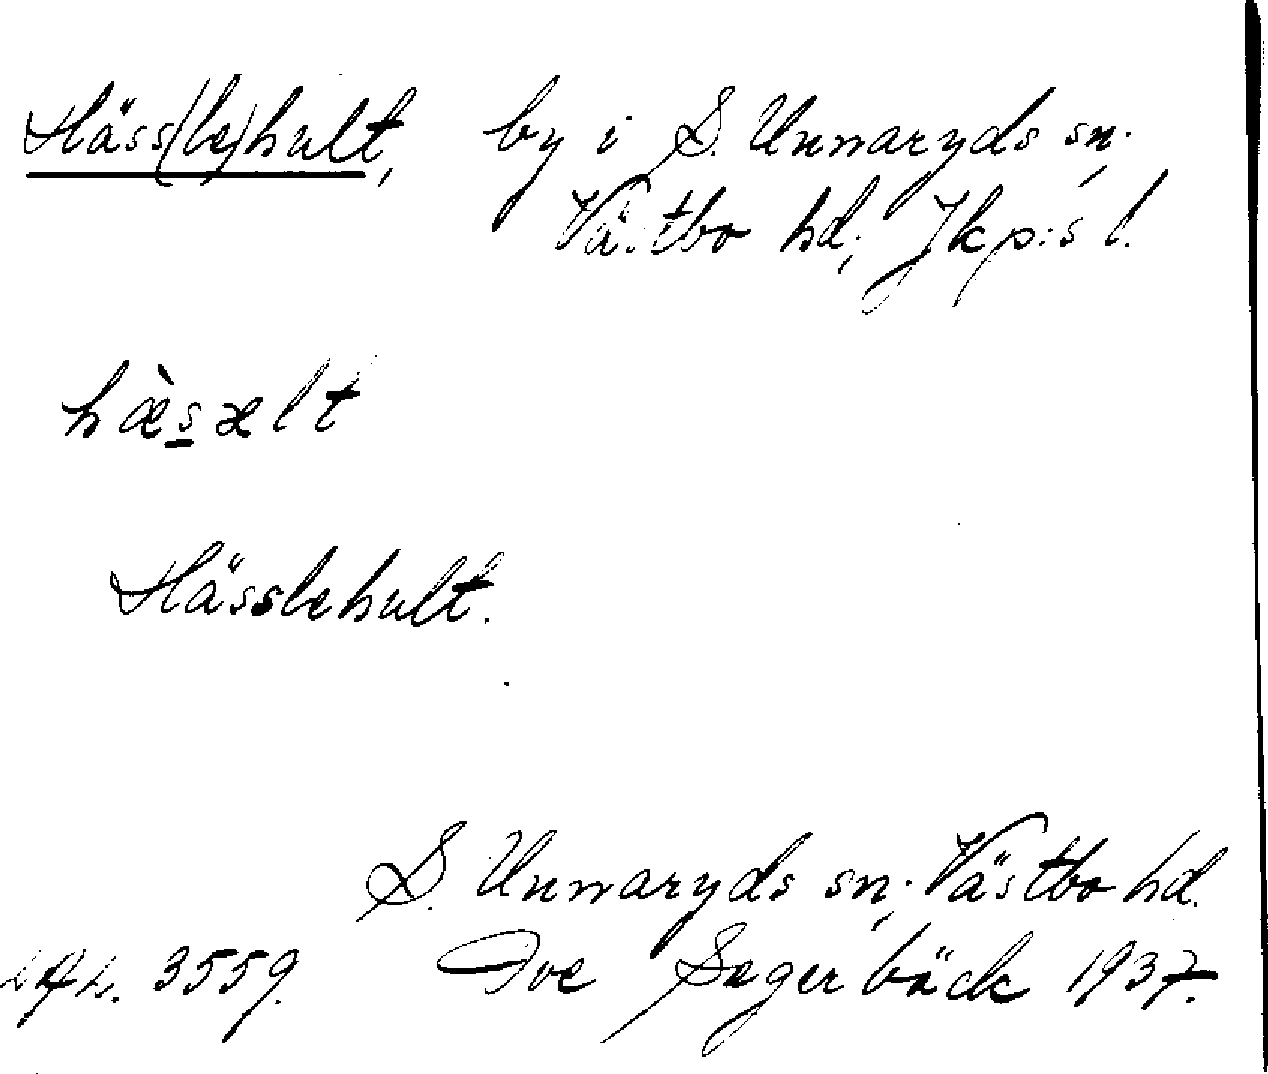 Häss(le)hult, by i S. Unnaryds sn.,
Västbo hd., Jkp:s l.
hæ̀s̲ælt
Hässlehult.
S. Unnaryds sn., Västbo hd.
3559. Ove Sagerbäck 1937.